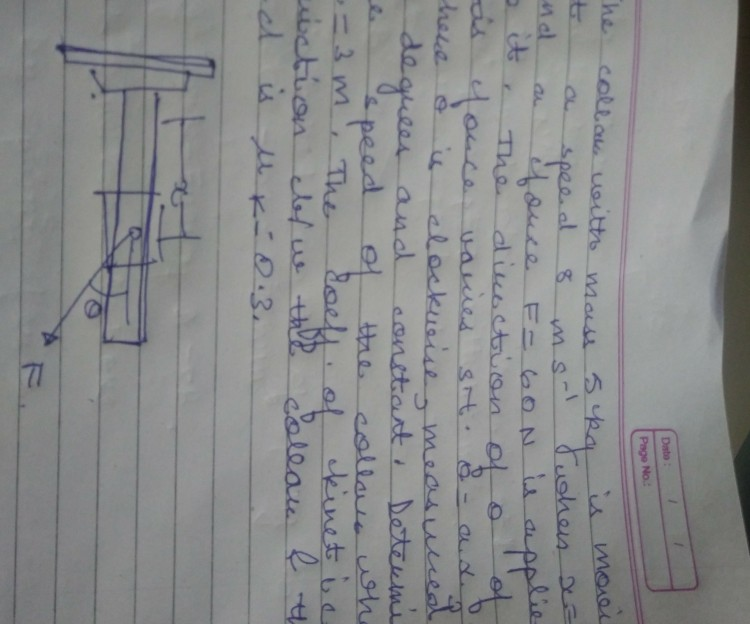 Date: / /
Page No.:
he collar with mass 5 kg is movi
t a speed 8 m s⁻¹ when x=
nd a force F = 60 N is applie
o it. The direction of θ of
is force varies s.t. θ = ax,
here θ is clockwise, measured
degrees and constant. Determi
e speed of the collar whe
= 3 m. The coeff. of kinetic
riction b/w the collar & th
d is μ k = 0.3.
x
θ
F